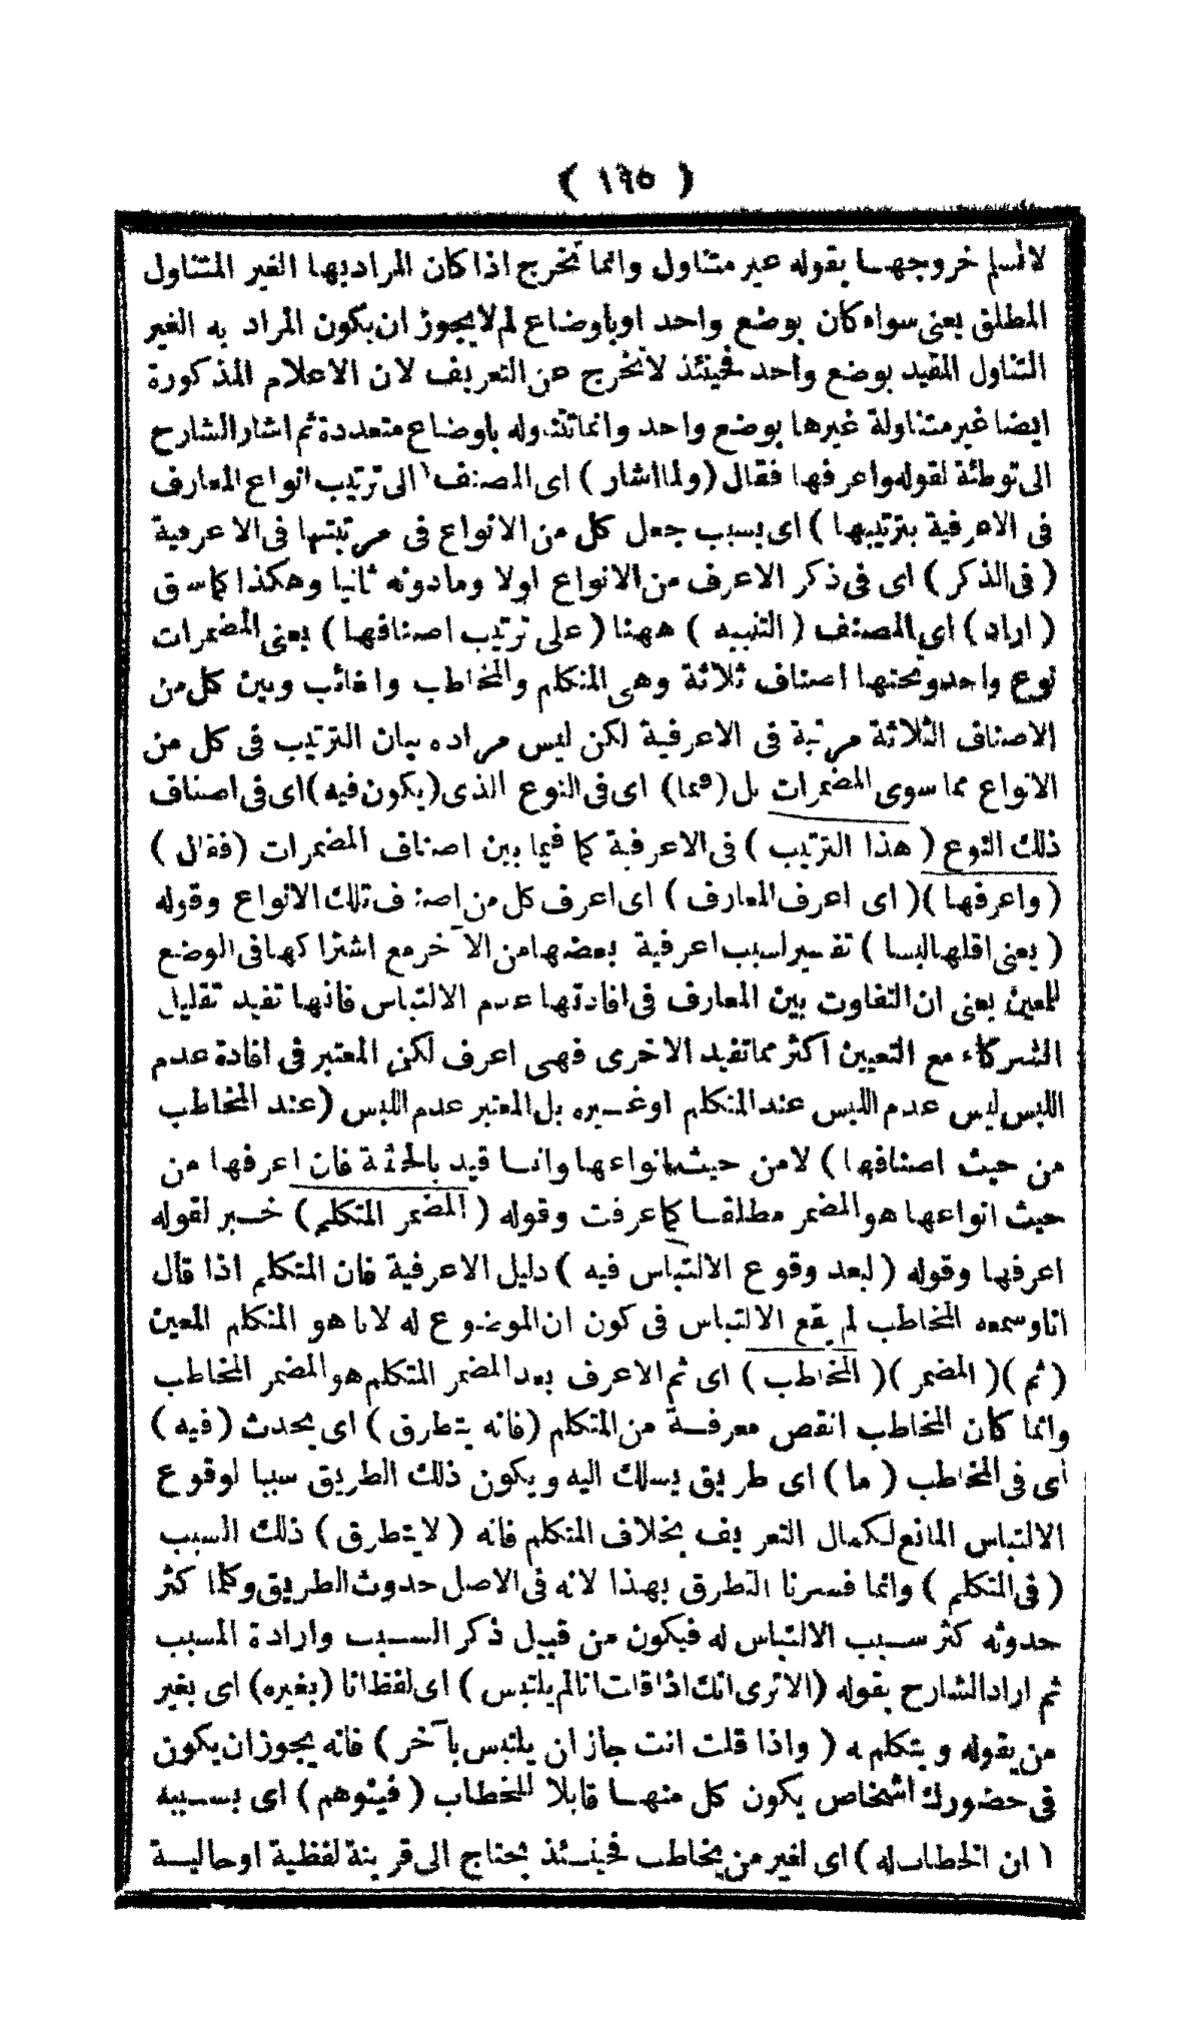 ( ١٦٥ )
لانسلم خروجها بقوله غير متناول وانما تخرج اذا كان المراد بها الغير المتناول
المطلق يعنى سواء كان بوضع واحد اوباوضاع لم لايجوز ان يكون المراد به الغير
التناول المقيد بوضع واحد فحينئذ لاتخرج عن التعريف لان الاعلام المذكورة
ايضا غير متناولة غيرها بوضع واحد وانما تتناوله باوضاع متعددة ثم اشار الشارح
الى توطئة لقوله واعرفها فقال (ولما اشار ) اى المصنف الى ترتيب انواع المعارف
فى الاعرفية بترتيبها ) اى بسبب جعل كل من الانواع فى مرتبتها فى الاعرفية
( فى الذكر ) اى فى ذكر الاعرف من الانواع اولا ومادونه ثانيا وهكذا كما سبق
( اراد ) اى المصنف ( التنبيه ) ههنا ( على ترتيب اصنافها ) يعنى المضمرات
نوع واحد وتحتها اصناف ثلاثة وهى المتكلم والمخاطب والغائب وبين كل من
الاصناف الثلاثة مرتبة فى الاعرفية لكن ليس مراده بيان الترتيب فى كل من
الانواع مما سوى المضمرات بل (فيما) اى فى النوع الذى (يكون فيه) اى فى اصناف
ذلك النوع ( هذا الترتيب ) فى الاعرفية كما فيما بين اصناف المضمرات (فقال )
( واعرفها )( اى اعرف المعارف ) اى اعرف كل من اصناف تلك الانواع وقوله
( يعنى اقلها لبسا ) تفسير لسبب اعرفية بعضها من الآخر مع اشتراكها فى الوضع
للمعين يعنى ان التفاوت بين المعارف فى افادتها عدم الالتباس فانها تفيد تقليل
الشركاء مع التعيين اكثر مما تفيد الاخرى فهى اعرف لكن المعتبر فى افادة عدم
اللبس ليس عدم اللبس عند المتكلم اوغيره بل المعتبر عدم اللبس (عند المخاطب
من حيث اصنافها ) لامن حيث انواعها وانما قيد بالحيثية فان اعرفها من
حيث انواعها هو المضمر مطلقا كما عرفت وقوله ( المضمر المتكلم ) خبر لقوله
اعرفها وقوله ( لبعد وقوع الالتباس فيه ) دليل الاعرفية فان المتكلم اذا قال
انا وسمعه المخاطب لم يقع الالتباس فى كون ان الموضوع له لانا هو المتكلم المعين
( ثم )( المضمر )( المخاطب ) اى ثم الاعرف بعد المضمر المتكلم هو المضمر المخاطب
وانما كان المخاطب انقص معرفة من المتكلم (فانه يتطرق ) اى يحدث (فيه )
اى فى المخاطب ( ما ) اى طريق يسلك اليه ويكون ذلك الطريق سببا لوقوع
الالتباس المانع لكمال التعريف بخلاف المتكلم فانه ( لايتطرق ) ذلك السبب
( فى المتكلم ) وانما فسرنا التطرق بهذا لانه فى الاصل حدوث الطريق وكلما كثر
حدوثه كثر سبب الالتباس له فيكون من قبيل ذكر السبب وارادة المسبب
ثم اراد الشارح بقوله (الاترى انك اذا قلت انا لم يلتبس ) اى لفظ انا (بغيره) اى بغير
من يقوله ويتكلم به ( واذا قلت انت جاز ان يلتبس بآخر ) فانه يجوز ان يكون
فى حضورك اشخاص يكون كل منها قابلا للخطاب ( فيتوهم ) اى بسببه
١ ان الخطاب له ) اى لغير من يخاطب فحينئذ يحتاج الى قرينة لفظية اوحالية